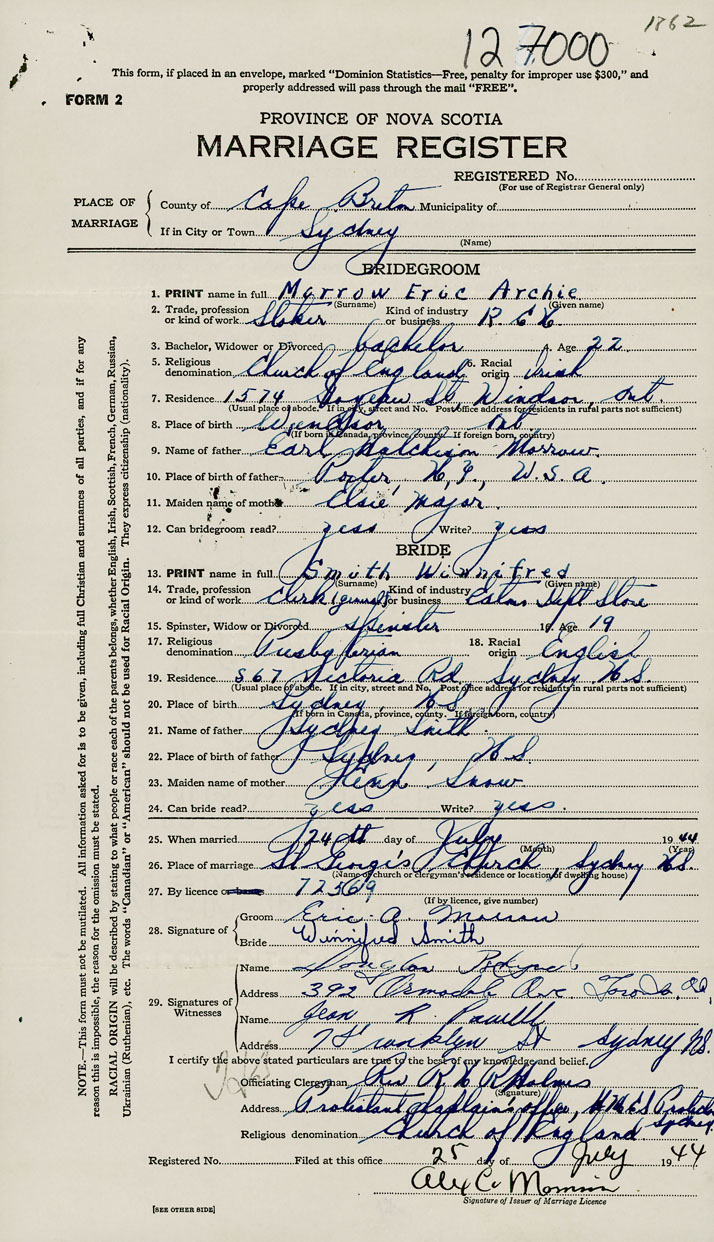 1862
127000
This form, if placed in an envelope, marked "Dominion Statistics—Free, penalty for improper use $300," and
properly addressed will pass through the mail "FREE".
FORM 2
PROVINCE OF NOVA SCOTIA
MARRIAGE REGISTER
REGISTERED No.
(For use of Registrar General only)
PLACE OF MARRIAGE
County of Cape Breton Municipality of
If in City or Town Sydney
(Name)
BRIDEGROOM
1. PRINT name in full Morrow Eric Archie
(Surname) (Given name)
2. Trade, profession or kind of work Stoker Kind of industry or business R.C.N.
3. Bachelor, Widower or Divorced bachelor 4. Age 22
5. Religious denomination Church of England 6. Racial origin Irish
7. Residence 1574 St, Windsor, Ont.
(Usual place of abode. If in city, street and No. Post office address for residents in rural parts not sufficient)
8. Place of birth Windsor Ont
(If born in Canada, province, county. If foreign born, country)
9. Name of father Earl Morrow.
10. Place of birth of father Porter, N.Y., U.S.A.
11. Maiden name of mother Elsie Major.
12. Can bridegroom read? yess Write? yess
BRIDE
13. PRINT name in full Smith Winnifred
(Surname) (Given name)
14. Trade, profession or kind of work Clerk (general) Kind of industry or business Eatons Dept Store
15. Spinster, Widow or Divorced spinster 16. Age 19
17. Religious denomination Presbyterian 18. Racial origin English
19. Residence 567 Victoria Rd, Sydney N.S.
(Usual place of abode. If in city, street and No. Post office address for residents in rural parts not sufficient)
20. Place of birth Sydney, N.S.
(If born in Canada, province, county. If foreign born, country)
21. Name of father Sydney Smith.
22. Place of birth of father Sydney, N.S
23. Maiden name of mother Snow
24. Can bride read? yess Write? yess.
25. When married 24th day of July 1944
(Month) (Year)
26. Place of marriage St George's Church, Sydney N.S.
(Name of church or clergyman's residence or location of dwelling house)
27. By licence or banns 72569
(If by licence, give number)
28. Signature of
Groom Eric A. Morrow
Bride Winnifred Smith
29. Signatures of Witnesses
Name Douglas
Address 392 Ave
Name Jean R. Powell
Address 7 Franklyn St Sydney NS.
I certify the above stated particulars are true to the best of my knowledge and belief.
Officiating Clergyman Rev R Holmes
(Signature)
Address Protestant Chaplain's office, H.M.C.S Protector Sydney
Religious denomination Church of England
Registered No. Filed at this office 25 day of July 1944
Alex C.
Signature of Issuer of Marriage Licence
[SEE OTHER SIDE]
NOTE.—This form must not be mutilated. All information asked for is to be given, including full Christian and surnames of all parties, and if for any
reason this is impossible, the reason for the omission must be stated.
RACIAL ORIGIN will be described by stating to what people or race each of the parents belongs, whether English, Irish, Scottish, French, German, Russian,
Ukrainian (Ruthenian), etc. The words "Canadian" or "American" should not be used for Racial Origin. They express citizenship (nationality).